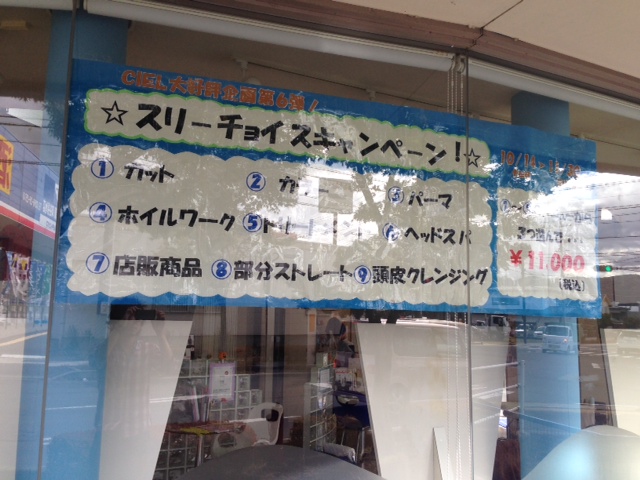 大謝恩企画第6弾！
☆スリーチョイスキャンペーン！☆
10/14
① カット
② カラー
③ パーマ
④ ホイルワーク
⑤ トリートメント
⑥ ヘッドスパ
⑦ 店販商品
⑧ 部分ストレート
⑨ 頭皮クレンジング
3つ選んで
¥11,000
(税込)